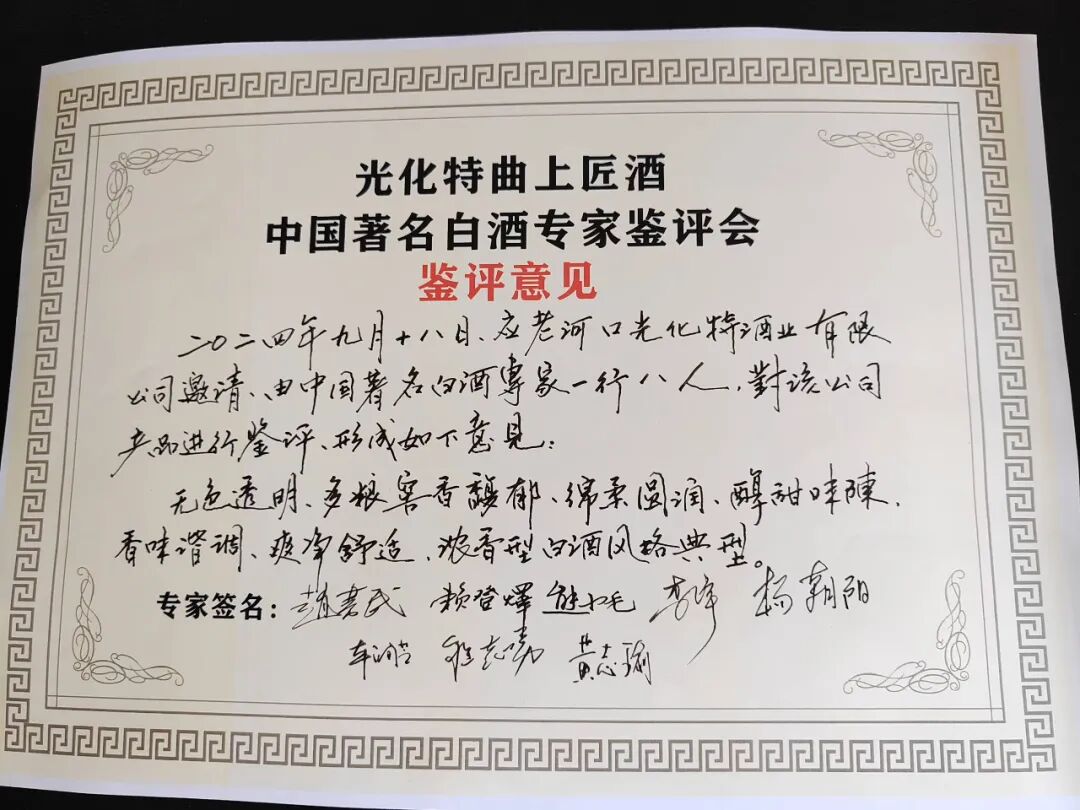 光化特曲上匠酒
中国著名白酒专家鉴评会
鉴评意见
二〇二四年九月十八日、应老河口光化特酒业有限
公司邀请、由中国著名白酒專家一行八人，對该公司
产品进行鉴评、形成如下意见：
无色透明、多粮窖香馥郁、绵柔圆润、醇甜味陳、
香味谐调、爽净舒适、浓香型白酒风格典型。
专家签名：趙書民 赖登燡 熊小毛 李净 杨朝阳
程志 黄志瑜